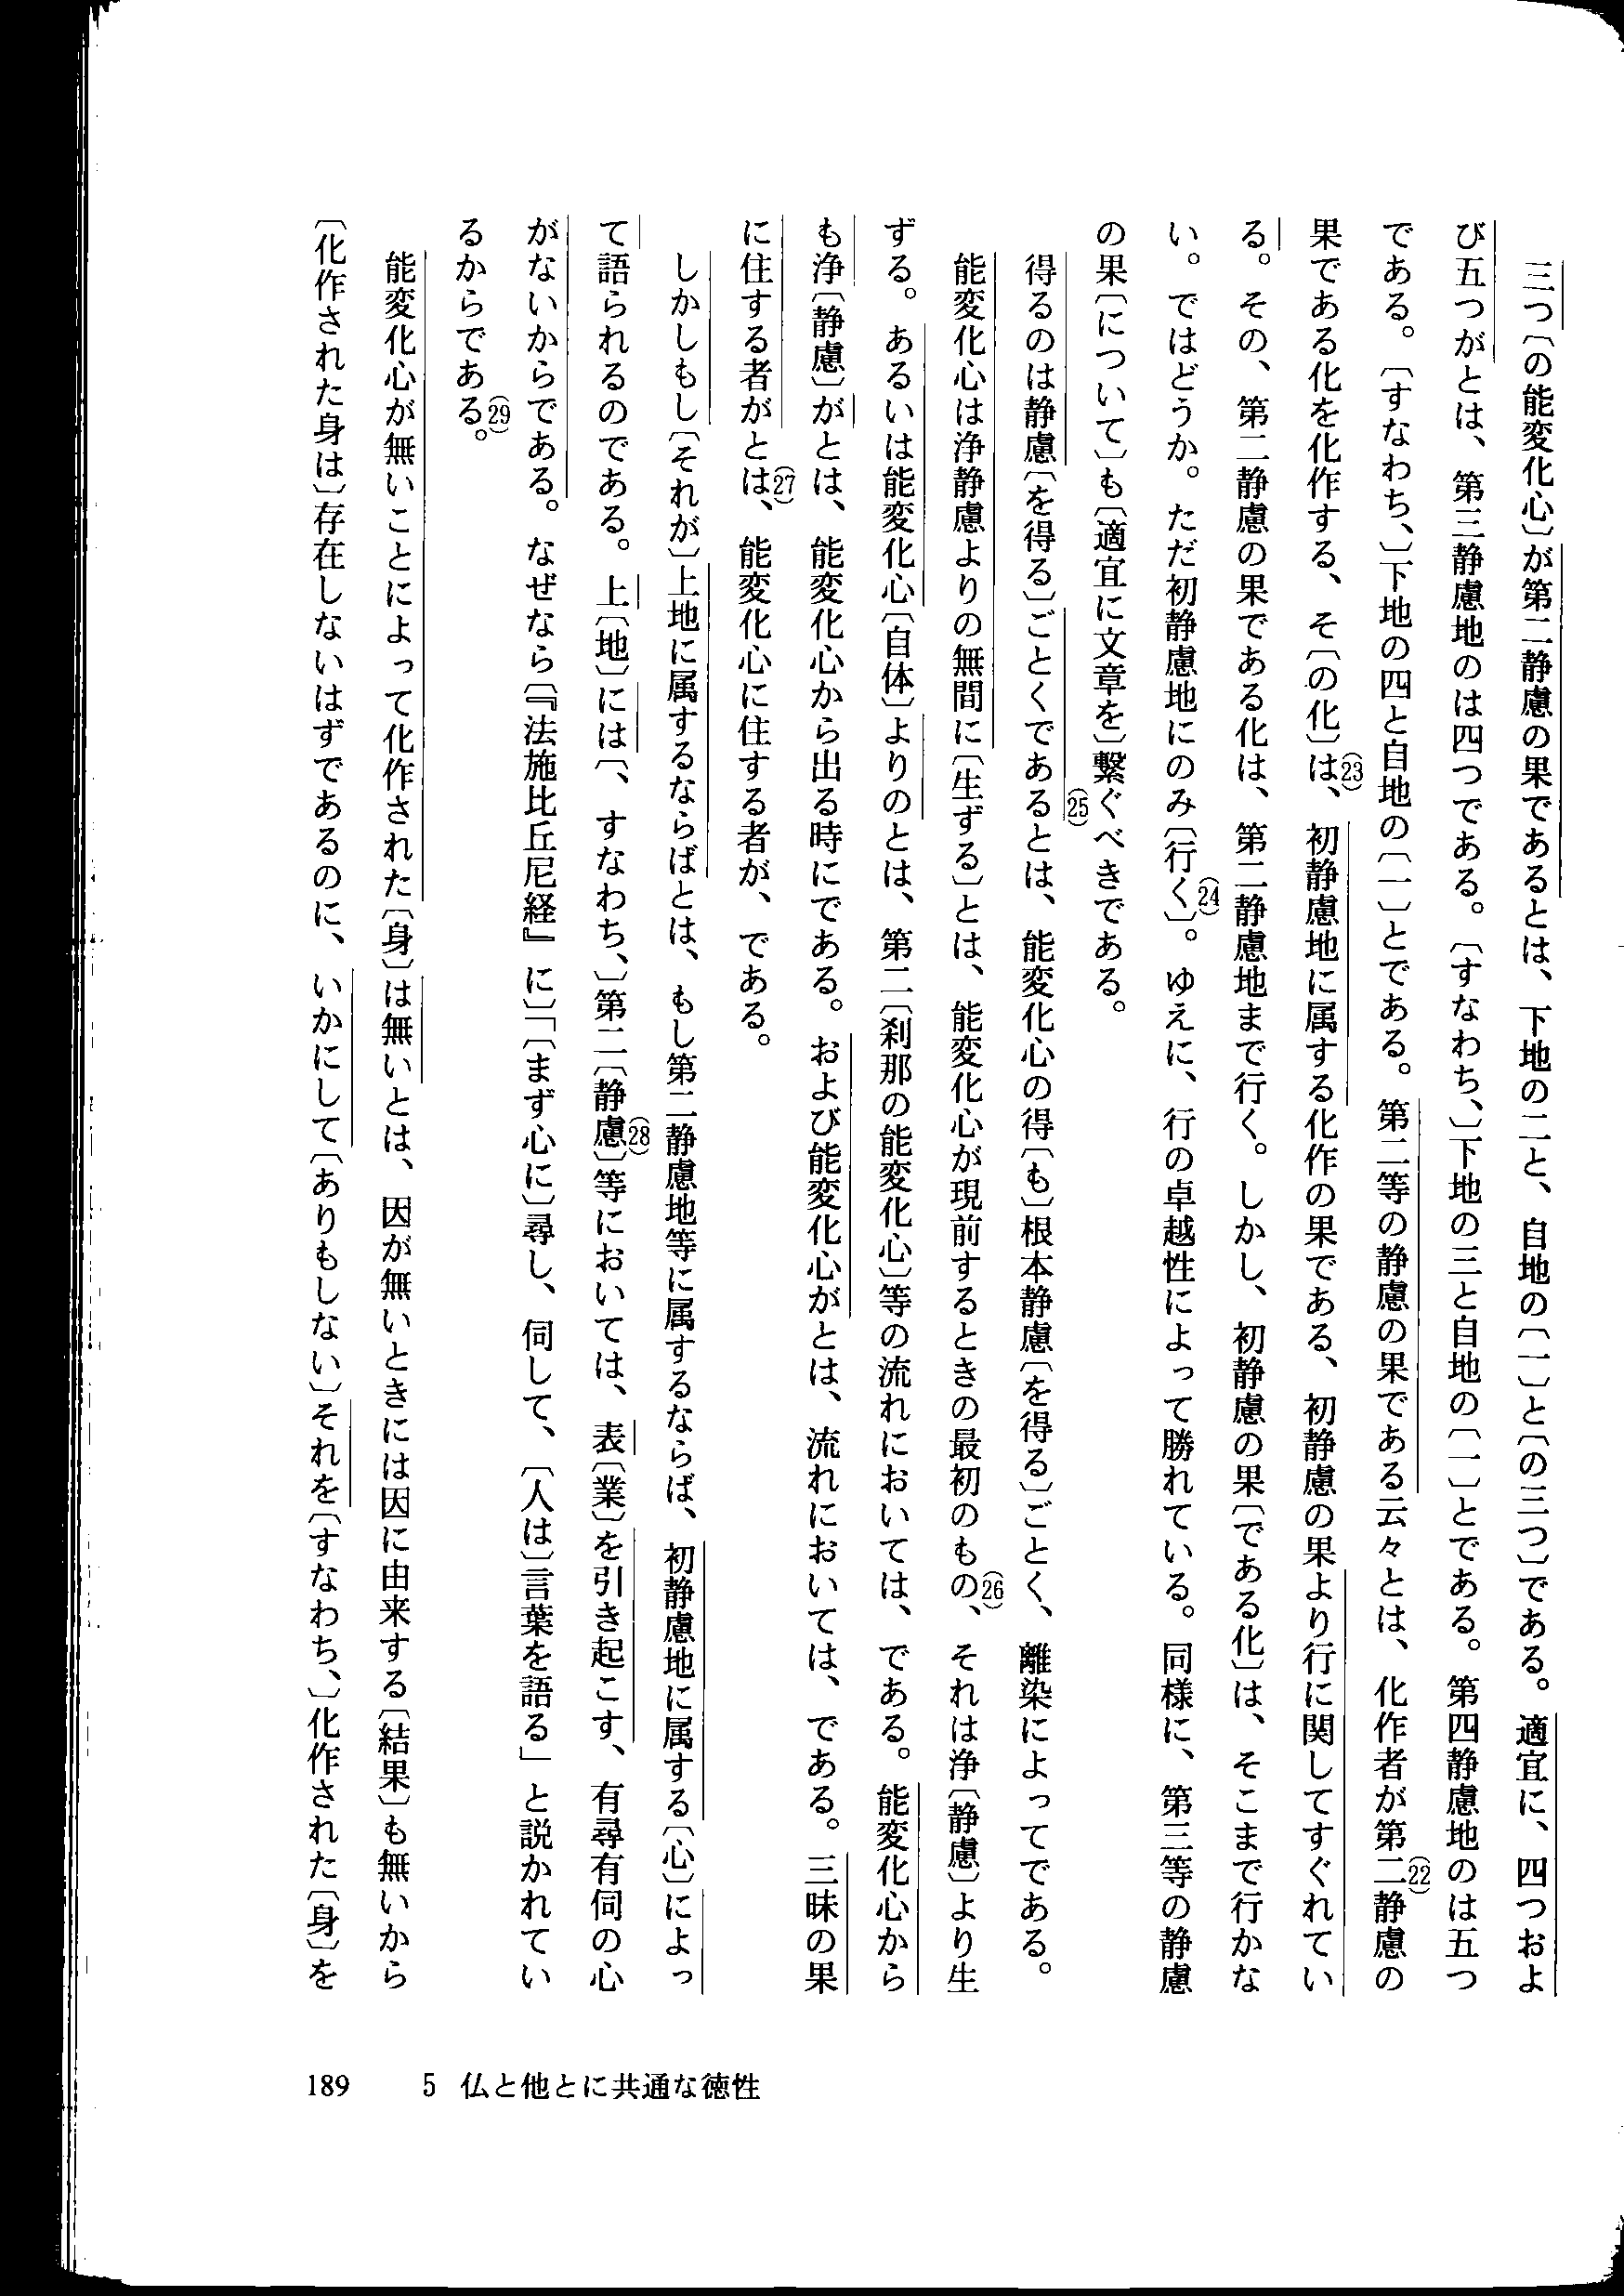 三つ〔の能変化心〕が第二静慮の果であるとは、下地の二と、自地の〔一〕と〔の三つ〕である。適宜に、四つおよ
び五つがとは、第三静慮地のは四つである。〔すなわち、〕下地の三と自地の〔一〕とである。第四静慮地のは五つ
である。〔すなわち、〕下地の四と自地の〔一〕とである。第二等の静慮の果である云々とは、化作者が第二静慮の(22)
果である化を化作する、そ〔の化〕は、(23)初静慮地に属する化作の果である、初静慮の果より行に関してすぐれてい
る。その、第二静慮の果である化は、第二静慮地まで行く。しかし、初静慮の果〔である化〕は、そこまで行かな
い。ではどうか。ただ初静慮地にのみ〔行く〕(24)。ゆえに、行の卓越性によって勝れている。同様に、第三等の静慮
の果〔について〕も〔適宜に文章を〕繋ぐべきである。
得るのは静慮〔を得る〕ごとくである(25)とは、能変化心の得〔も〕根本静慮〔を得る〕ごとく、離染によってである。
能変化心は浄静慮よりの無間に〔生ずる〕とは、能変化心が現前するときの最初のもの、(26)それは浄〔静慮〕より生
ずる。あるいは能変化心〔自体〕よりのとは、第二〔刹那の能変化心〕等の流れにおいては、である。能変化心から
も浄〔静慮〕がとは、能変化心から出る時にである。および能変化心がとは、流れにおいては、である。三昧の果
に住する者がとは、(27)能変化心に住する者が、である。
しかしもし〔それが〕上地に属するならばとは、もし第二静慮地等に属するならば、初静慮地に属する〔心〕によっ
て語られるのである。上〔地〕には〔、すなわち、〕第二〔静慮〕(28)等においては、表〔業〕を引き起こす、有尋有伺の心
がないからである。なぜなら〔『法施比丘尼経』に〕「〔まず心に〕尋し、伺して、〔人は〕言葉を語る」と説かれてい
るからである(29)。
能変化心が無いことによって化作された〔身〕は無いとは、因が無いときには因に由来する〔結果〕も無いから
〔化作された身は〕存在しないはずであるのに、いかにして〔ありもしない〕それを〔すなわち、〕化作された〔身〕を
189 5 仏と他とに共通な徳性